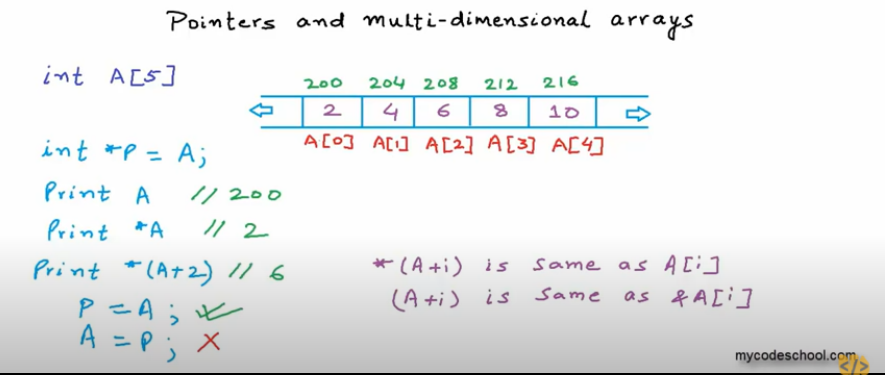 Pointers and multi-dimensional arrays
int A[5]
200 204 208 212 216
2 4 6 8 10
A[0] A[1] A[2] A[3] A[4]
int *P = A;
Print A // 200
Print *A // 2
Print *(A+2) // 6
*(A+i) is same as A[i]
P = A;
(A+i) is same as &A[i]
A = P;
mycodeschool.com